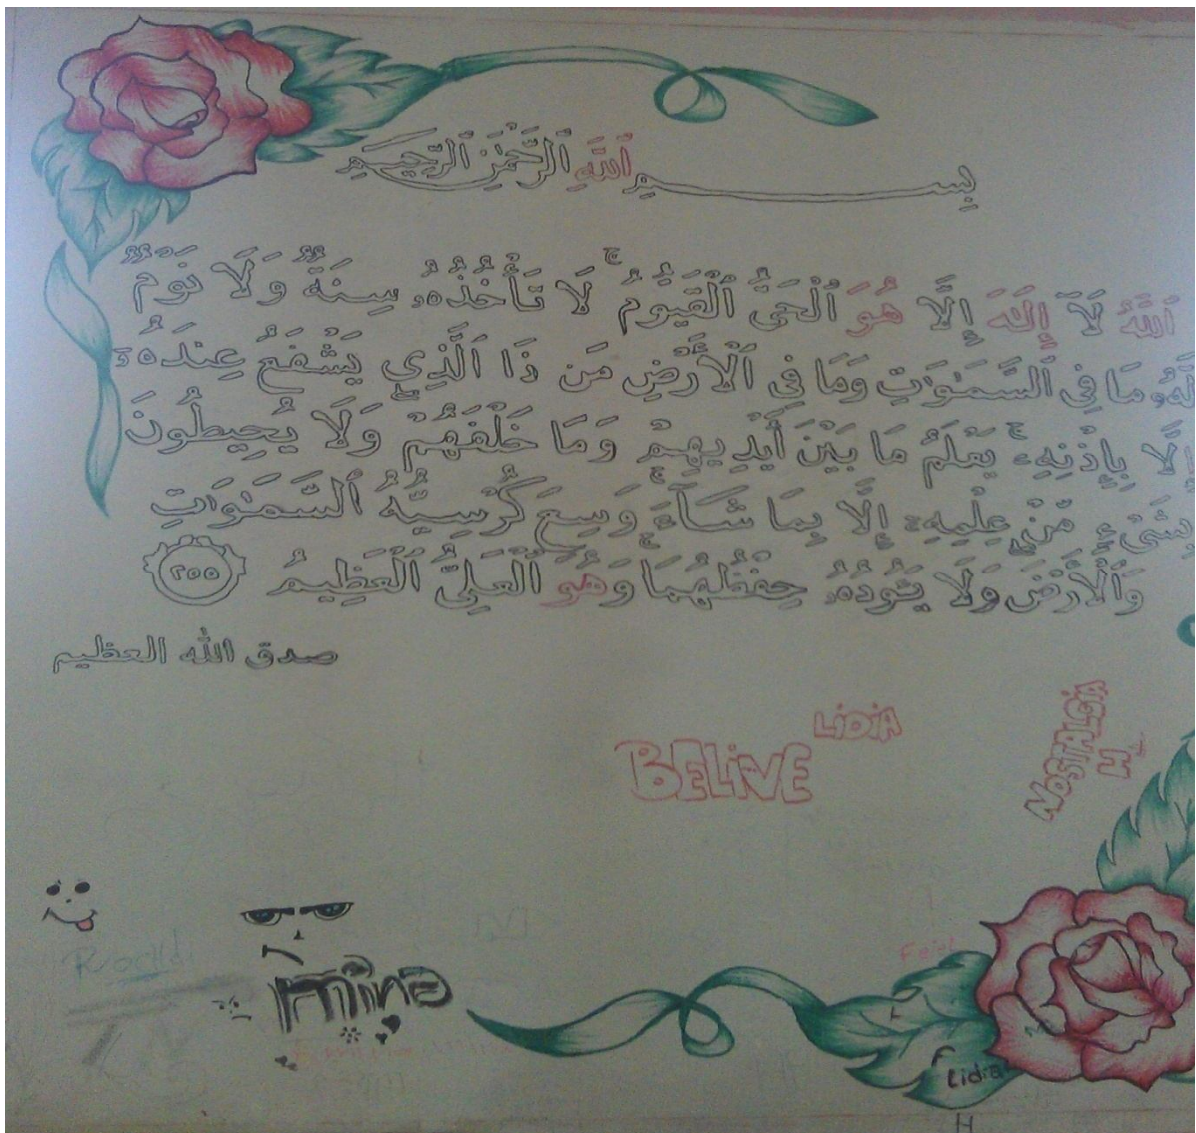 بِسْمِ ٱللَّهِ ٱلرَّحْمَٰنِ ٱلرَّحِيمِ
ٱللَّهُ لَآ إِلَٰهَ إِلَّا هُوَ ٱلْحَىُّ ٱلْقَيُّومُ ۚ لَا تَأْخُذُهُۥ سِنَةٌ وَلَا نَوْمٌ
لَّهُۥ مَا فِى ٱلسَّمَٰوَٰتِ وَمَا فِى ٱلْأَرْضِ مَن ذَا ٱلَّذِي يَشْفَعُ عِندَهُۥ
إِلَّا بِإِذْنِهِۦ ۚ يَعْلَمُ مَا بَيْنَ أَيْدِيهِمْ وَمَا خَلْفَهُمْ وَلَا يُحِيطُونَ
بِشَىْءٍ مِّنْ عِلْمِهِۦٓ إِلَّا بِمَا شَآءَ ۚ وَسِعَ كُرْسِيُّهُ ٱلسَّمَٰوَٰتِ
وَٱلْأَرْضَ وَلَا يَـُٔودُهُۥ حِفْظُهُمَا وَهُوَ ٱلْعَلِىُّ ٱلْعَظِيمُ ٢٥٥
صدق الله العظيم
LiDiA
BELiVE
NOSTALGiA
H
imina
Lidia
H